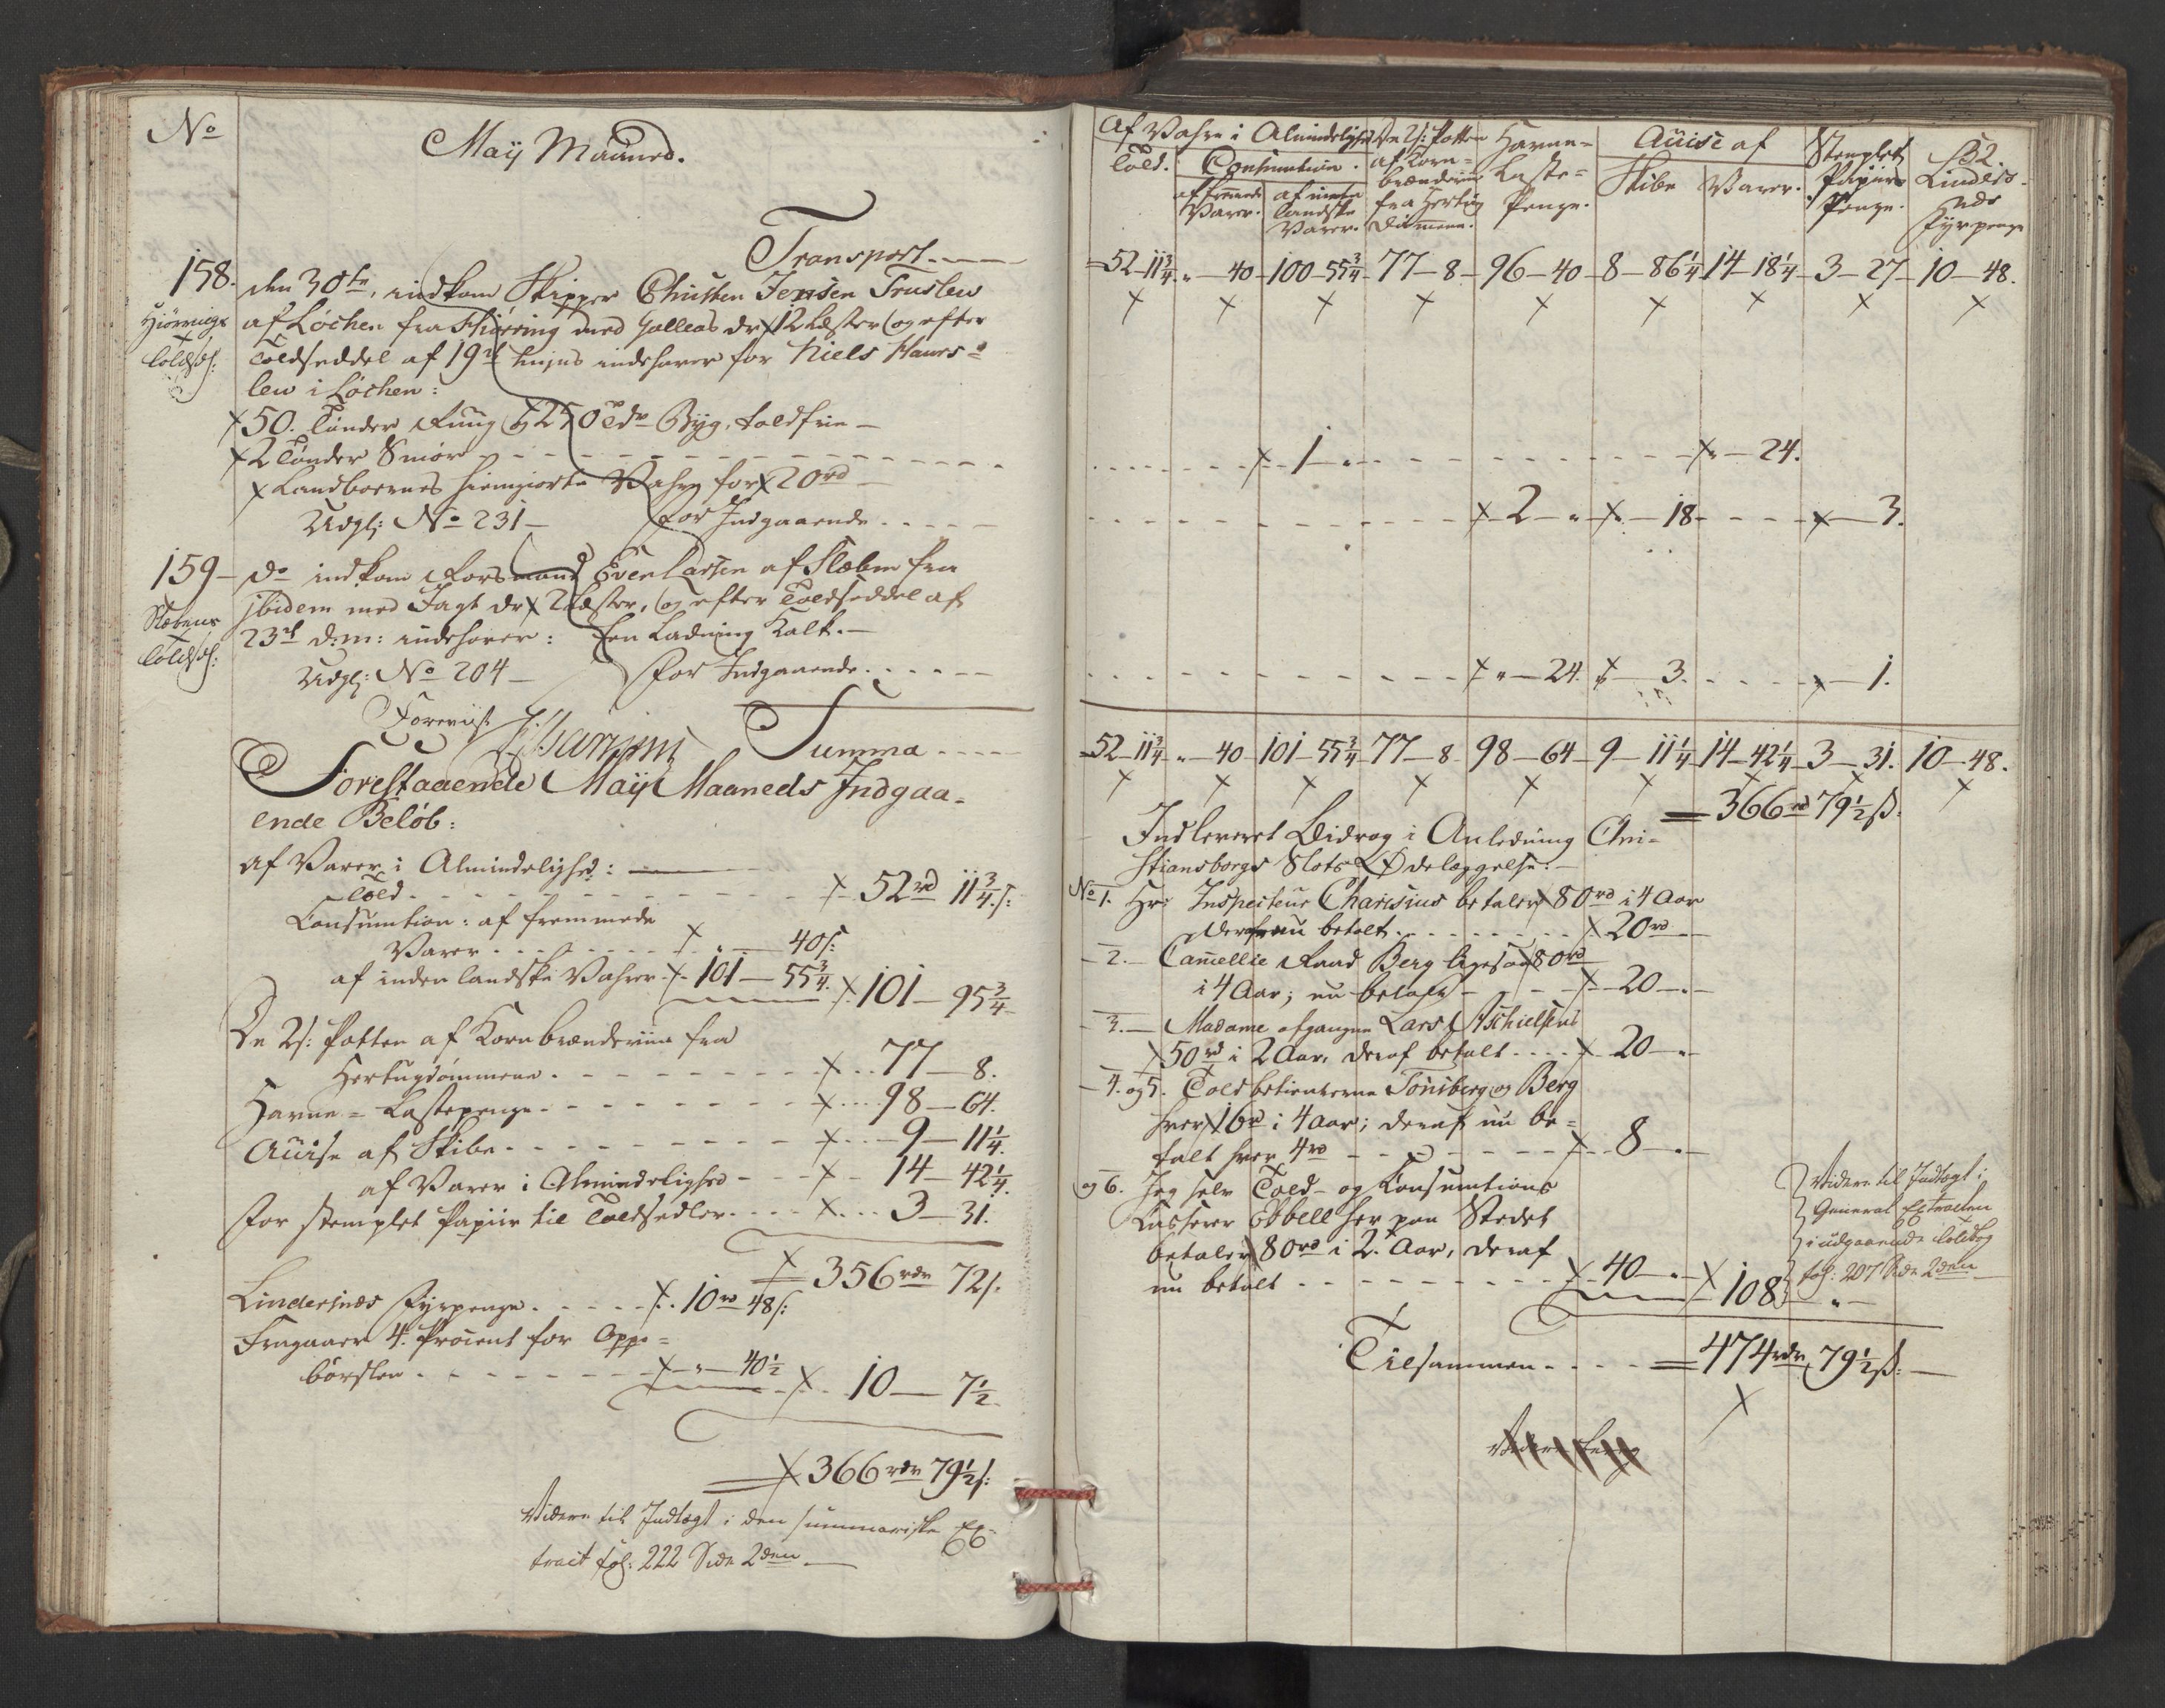 No
May Maaned.
Transport
158. den 30te, indkom Skipper Christen Jensen Truslew
Hiørrings
Toldsed:
af Løchen fra Hiørring med Galleas dr. 12 Læster og efter
Toldseddel af 19de hujus indehaver for Niels Haurs=
lew i Løchen:
50. Tønder Ruug og 250 Tdr Byg, toldfrie
2 Tønder Smør
Landboernes hiemgiorte Vahre for 20rd
Udgl: No 231 for Indgaaende
159 do indkom Forsmand Even Larsen af Slæbne fra
Toldsed:
ibidem med Jagt dr. 2 Læster, og efter Toldseddel af
23de d.m: indehaver: En Ladning Kalk.
Udgl: No 204 for Indgaaende
Foreviist
Summa
Forestaaende May Maaneds Indgaa=
ende Beløb:
af Varer i Almindelighed:
Told 52rd 11 3/4 s:
Consumtion: af fremmede
Varer " 40 s:
af inden landske Vahrer 101 - 55 3/4. 101 - 95 3/4
De 2 s: Potten af Korn brændeviin fra
Hertugdømmene 77 - 8.
Havne= Lastepenge 98 - 64.
Accise af Skibe 9 - 11 1/4.
af Varer i Almindelighed 14 - 42 1/4.
for stemplet Papiir til Toldsedler 3 - 31.
356 rdr 72 s.
Lindesnæs Fyrpenge 10rd 48 s:
Fragaaer 4. Procent for Oppe=
børslen " - 40 1/2 10 - 7 1/2
366 rdr 79 1/2 s:
Videre til Indtægt i den summariske Ex=
tract fol: 222 Side 2den
Af Vahre i Almindelighed
De 2 s: Potten
af Korn=
brændeviin
fra Hertug
dømmene.
Havne=
Laste=
Penge.
Accise af
Stemplet
Papiirs
Penge.
Lindes=
næs
Fyrpenge
Told.
Consumtion.
Skibe
Varer.
af fremmede
Varer.
af inden
landske
Varer.
52 - 11 3/4 " - 40 100 - 55 3/4 77 - 8 96 - 40 8 - 86 1/4 14 - 18 1/4 3 - 27 10 - 48.
1 - " " - 24.
2 - " " - 18 - 3.
" - 24. " - 3. - 1.
52 - 11 3/4 " - 40 101 - 55 3/4 77 - 8 98 - 64 9 - 11 1/4 14 - 42 1/4 3 - 31. 10 - 48.
= 366rd 79 1/2 ß.
Indleveret Bidrag i Anledning Chri=
stiansborgs Slots Ødelæggelse:
No 1. Hr: Inspecteur Charisius betaler 80rd i 4 Aar
deraf nu betalt 20rd
2. Cancellie Raad Berg ligesaa 80rd
i 4 Aar; nu betalt 20 - "
3. Madame afgangne Lars Aschielsens
50rd i 2 Aar, deraf betalt 20 - "
4. og 5. Toldbetienterne Tønsberg og Berg
hver 16rd i 4 Aar; deraf nu be=
talt hver 4rd 8 - "
og 6. Jeg selv Told- og Consumtions
Casserer Ebbell her paa Stedet
betaler 80rd i 2. Aar, deraf
nu betalt 40 - " 108 - "
Videre til Indtægt i
General Extracten
i udgaaende Toldbog
fol: 207 Side 2den
Tilsammen = 474 rdr 79 1/2 ß: